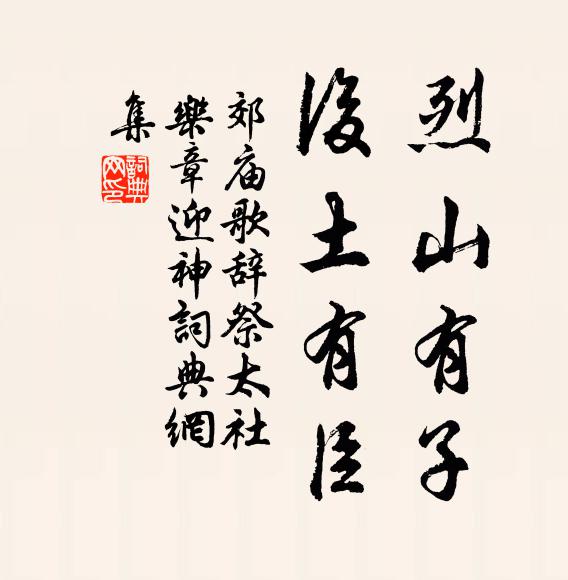 烈山有子
後土有臣
郊庙歌辞祭太社
樂章迎神詞典網
集
詞典网印